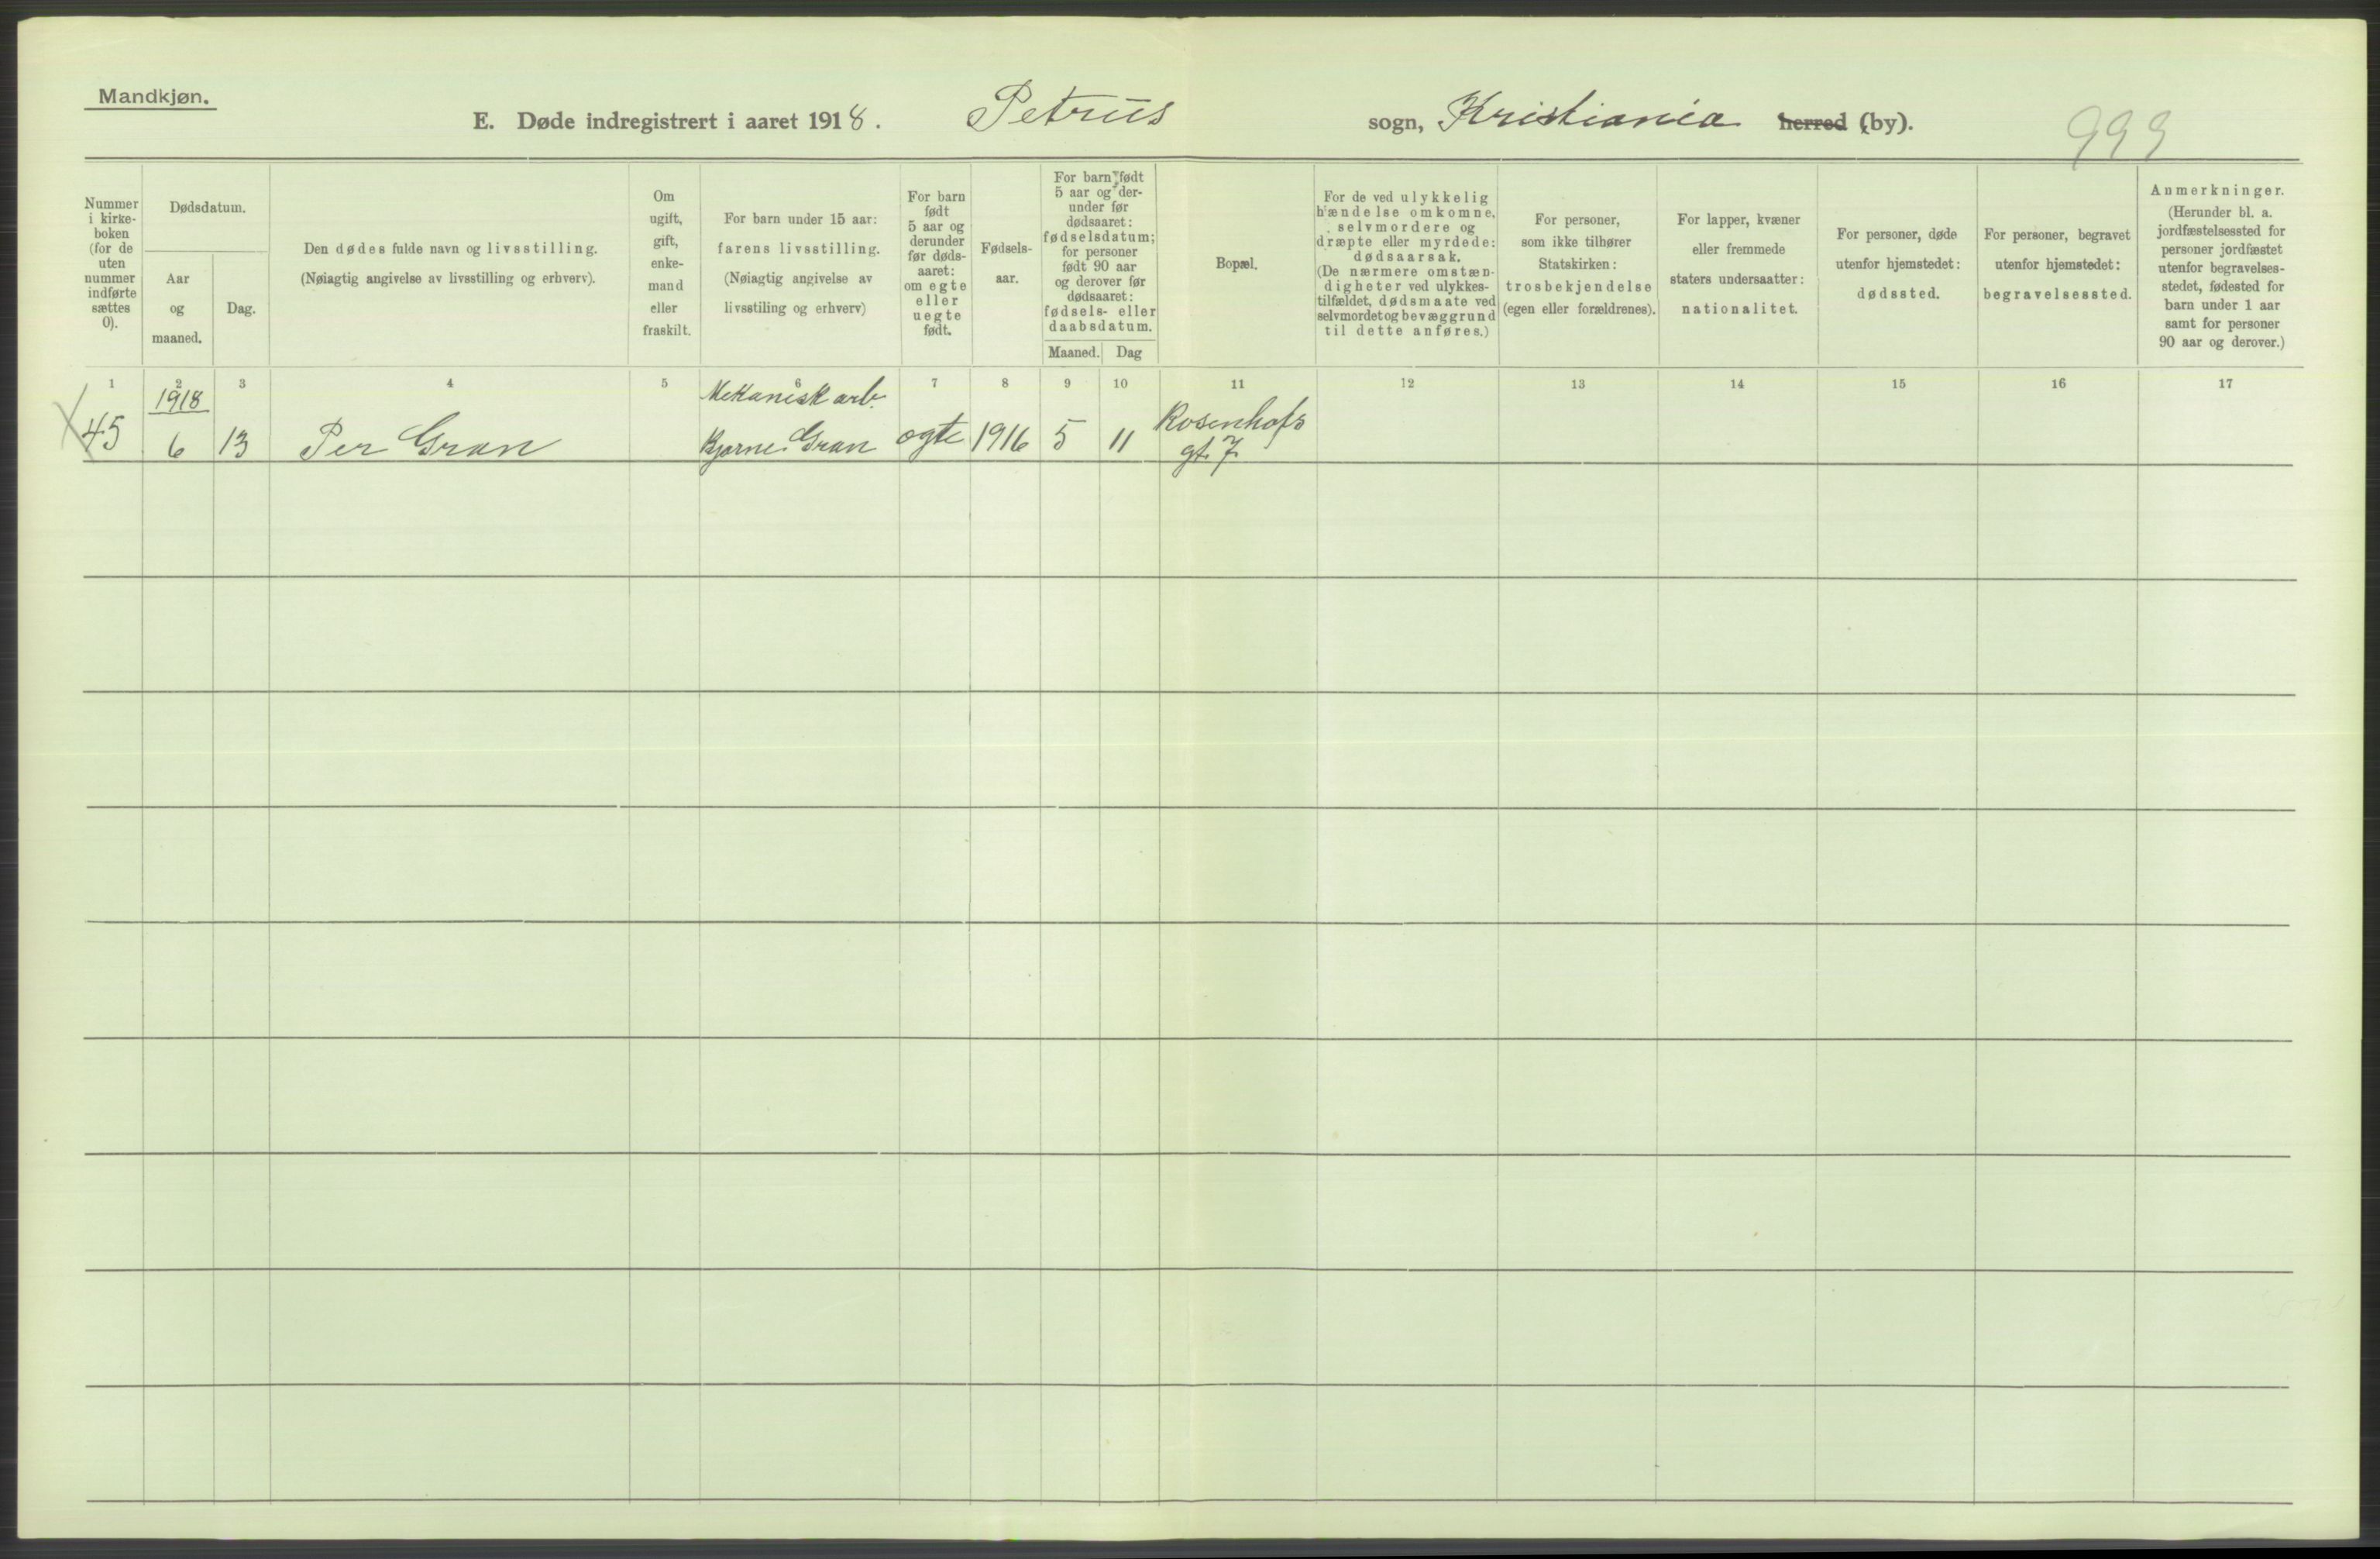 Mandkjøn.
E. Døde indregistrert i aaret 1918. Petrus sogn, Kristiania herred (by).
999
Nummer
i kirke-
boken
(for de
uten
nummer
indførte
sættes
0).
Dødsdatum.
Aar
og
maaned.
Dag.
Den dødes fulde navn og livsstilling.
(Nøiagtig angivelse av livsstilling og erhverv).
Om
ugift,
gift,
enke-
mand
eller
fraskilt.
For barn under 15 aar:
farens livsstilling.
(Nøiagtig angivelse av
livsstiling og erhverv)
For barn
født
5 aar og
derunder
før døds-
aaret:
om egte
eller
uegte
født.
Fødsels-
aar.
For barn født
5 aar og der-
under før
dødsaaret:
fødselsdatum;
for personer
født 90 aar
og derover før
dødsaaret:
fødsels- eller
daabsdatum.
Maaned. Dag
Bopæl.
For de ved ulykkelig
hændelse omkomne,
selvmordere og
dræpte eller myrdede:
dødsaarsak.
(De nærmere omstæn-
digheter ved ulykkes-
tilfældet, dødsmaate ved
selvmordet og bevæggrund
til dette anføres.)
For personer,
som ikke tilhører
Statskirken:
trosbekjendelse
(egen eller forældrenes).
For lapper, kvæner
eller fremmede
staters undersaatter:
nationalitet.
For personer, døde
utenfor hjemstedet:
dødssted.
For personer, begravet
utenfor hjemstedet:
begravelsessted.
Anmerkninger.
(Herunder bl. a.
jordfæstelsessted for
personer jordfæstet
utenfor begravelses-
stedet, fødested for
barn under 1 aar
samt for personer
90 aar og derover.)
1 2 3 4 5 6 7 8 9 10 11 12 13 14 15 16 17
1918 Mekanisk arb. Rosenhofs
45 6 13 Per Gran Bjarne Gran egte 1916 5 11 gt. 7